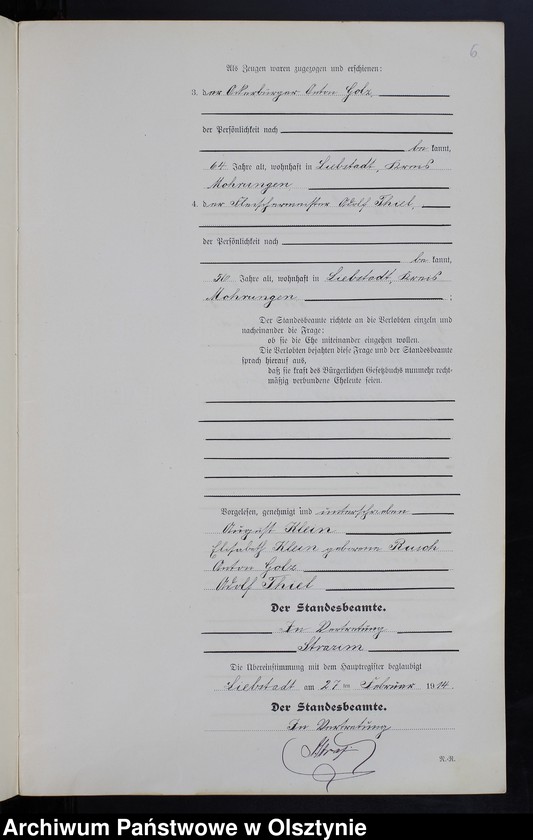 6
Als Zeugen waren zugezogen und erschienen:
3. der Ackerbürger Anton Golz,
der Persönlichkeit nach
be kannt,
64 Jahre alt, wohnhaft in Liebstadt, Kreis
Mohrungen
4. der Fleischermeister Adolf Thiel,
der Persönlichkeit nach
be kannt,
Jahre alt, wohnhaft in Liebstadt, Kreis
Mohrungen ;
Der Standesbeamte richtete an die Verlobten einzeln und
nacheinander die Frage:
ob sie die Ehe miteinander eingehen wollen.
Die Verlobten bejahten diese Frage und der Standesbeamte
sprach hierauf aus,
daß sie kraft des Bürgerlichen Gesetzbuchs nunmehr recht-
mäßig verbundene Eheleute seien.
Vorgelesen, genehmigt und unterschrieben
August Klein
Elisabeth Klein geborene Rusch
Anton Golz
Adolf Thiel
Der Standesbeamte.
In Vertretung
Die Übereinstimmung mit dem Hauptregister beglaubigt
Liebstadt am 27ten Februar 1914.
Der Standesbeamte.
In Vertretung
N.-R.
Archiwum Państwowe w Olsztynie